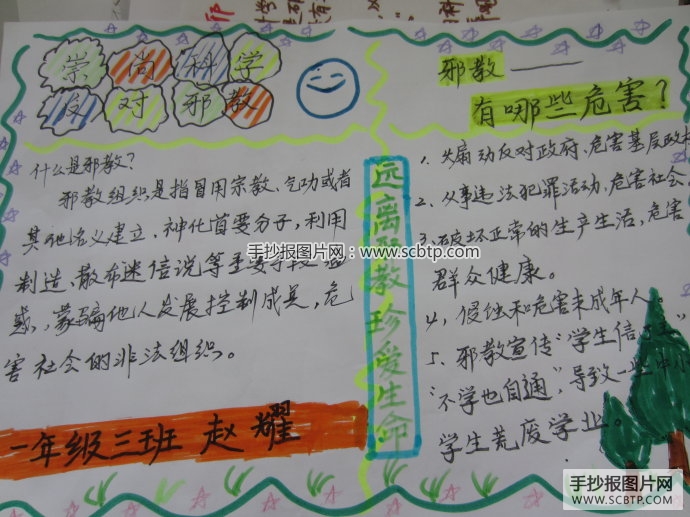 崇尚科学
反对邪教
什么是邪教?
邪教组织是指冒用宗教、气功或者
其他名义建立、神化首要分子,利用
制造、散布迷信说等手段
惑、蒙骗他人发展控制成员,危
害社会的非法组织。
一年级三班 赵耀
远离邪教珍爱生命
邪教——
有哪些危害?
1、煽动反对政府、危害基层政
2、从事违法犯罪活动,危害社会
3、破坏正常的生产生活,危害
群众健康。
4、侵蚀和危害未成年人。
5、邪教宣传“学生信主”
“不学也自通”,导致一些中小
学生荒废学业。
手抄报图片网:www.scbtp.com
手抄报图片网
WWW.SCBTP.COM